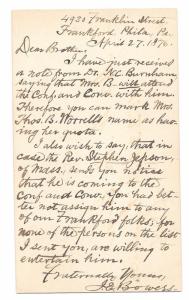 4930 Franklin Street,
Frankford Phila. Pa.
April 27, 1890.
Dear Brother:
I have just received
a note from Dr. N.C. Burnham
saying that Mrs. B. will attend
the Conf and Conv. with him.
Therefore you can mark Mrs.
Thos. B. Worrells name as hav-
ing her quota.
I also wish to say, that in
case the Rev. Stephen Jepson,
of Mass., sends you notice
that he is coming to the
Conf and Conv. you had bet-
ter not assign him to any
of our Frankford folks, for
none of the persons on the list
I sent you, are willing to
entertain him.
Fraternally Yours,
Bowers.